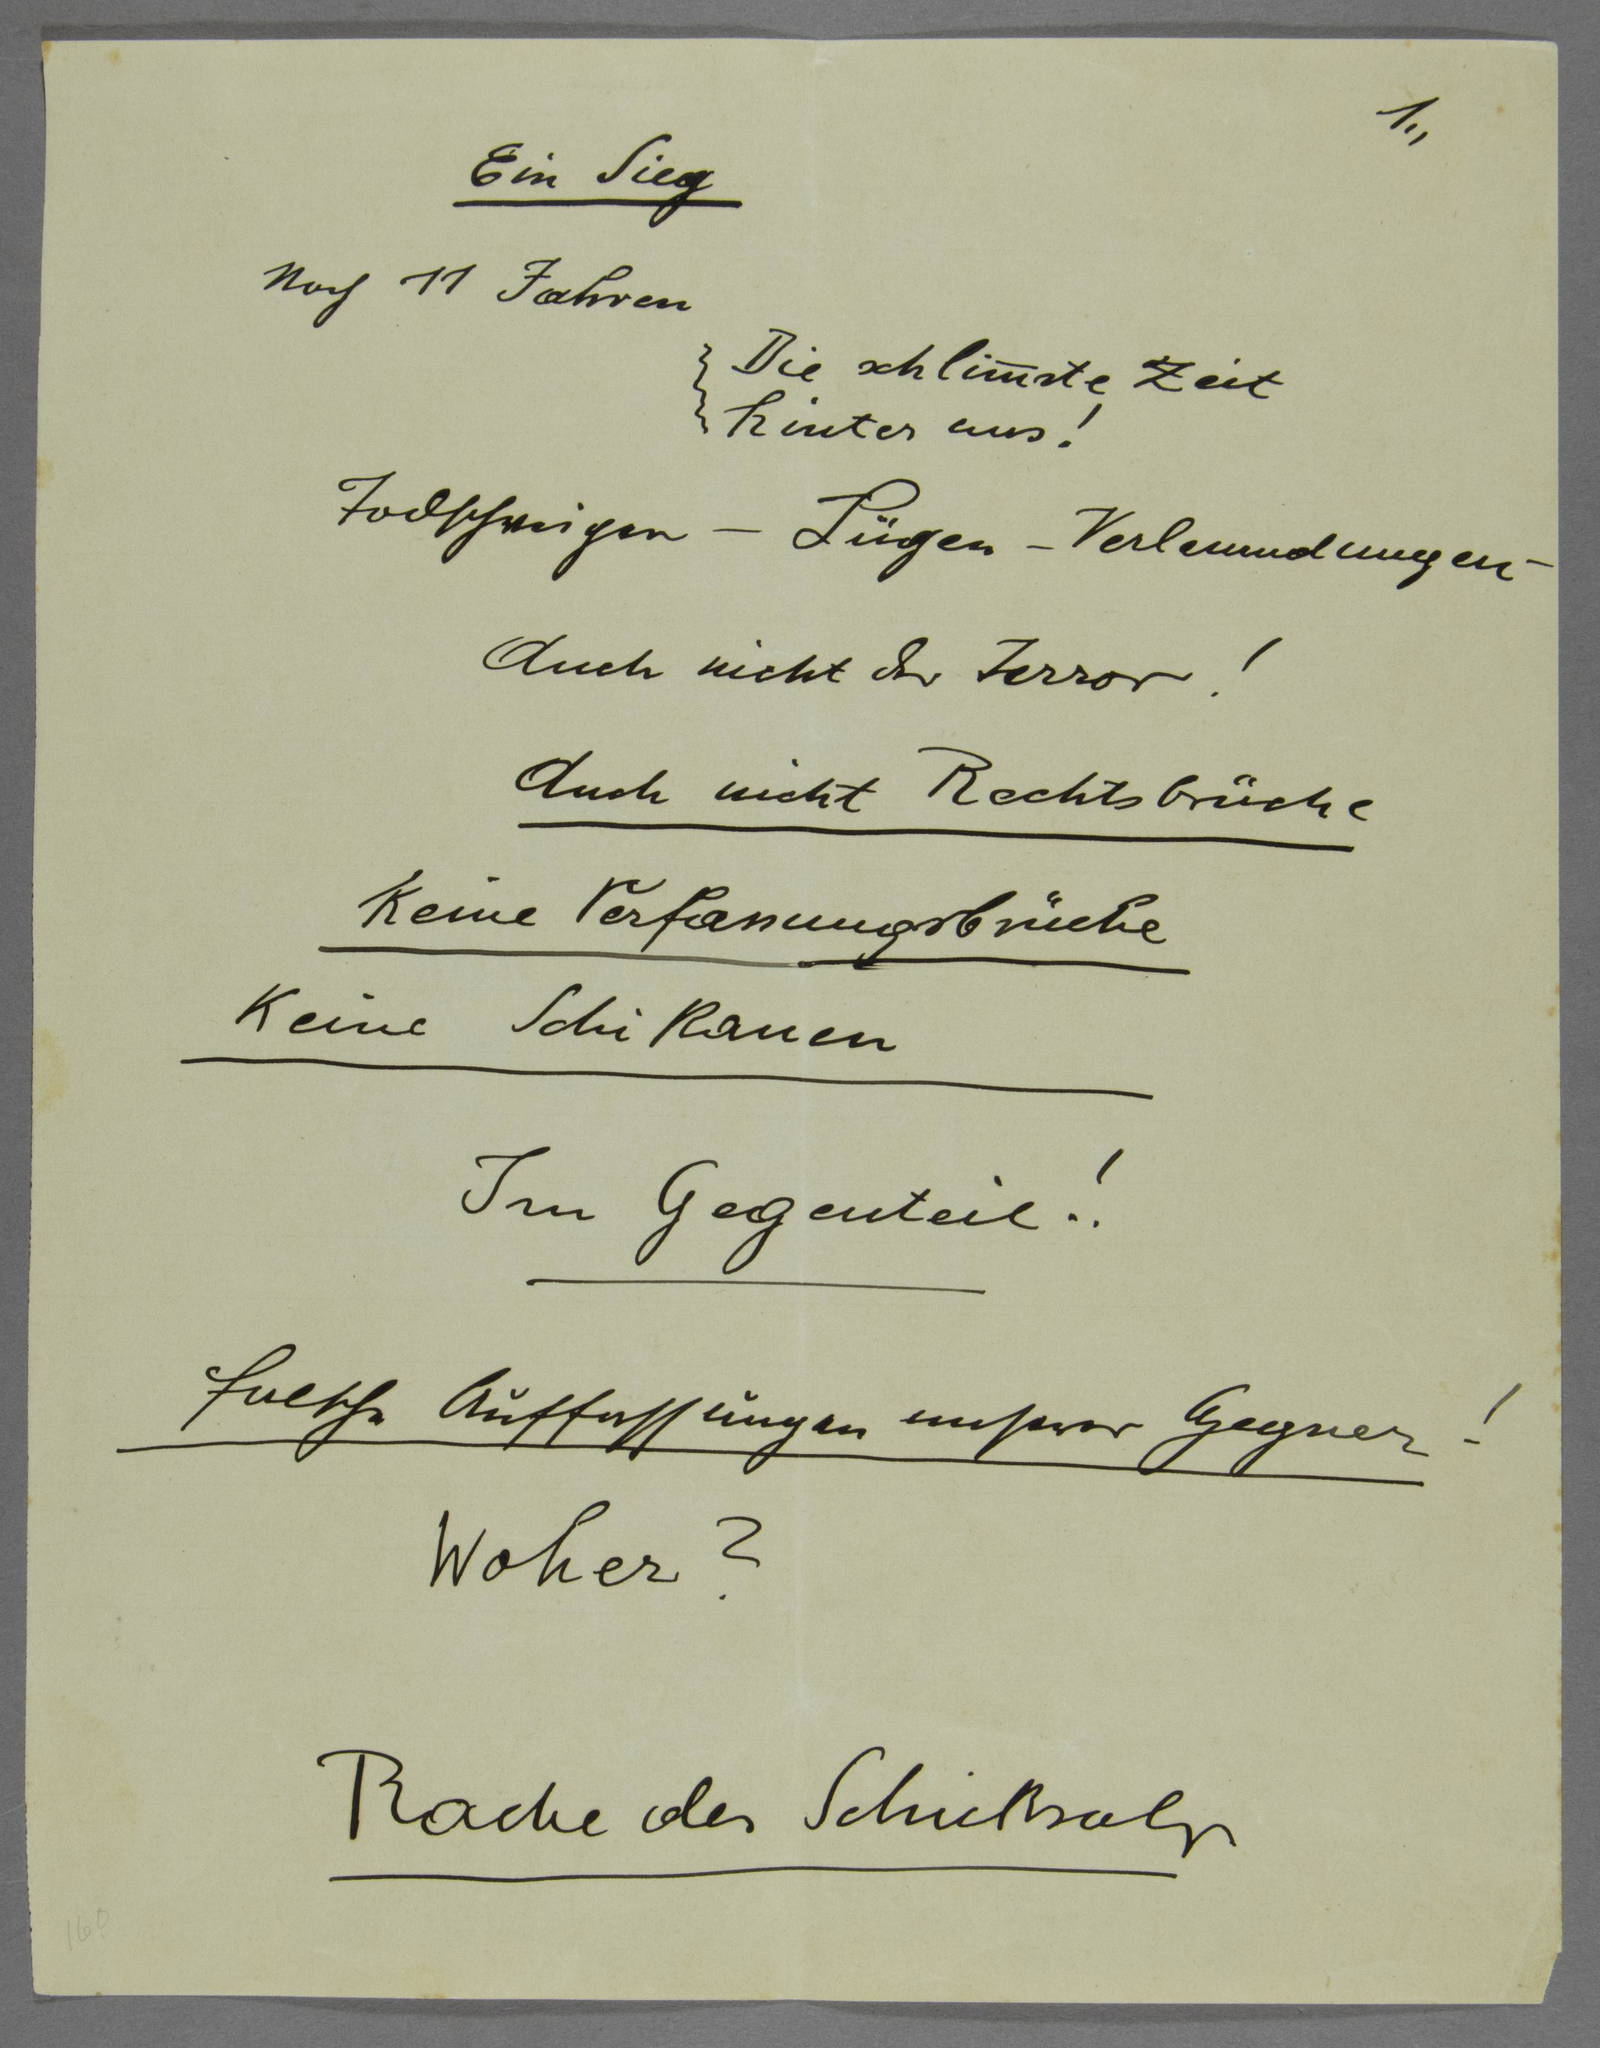 1.,,
Ein Sieg
Nach 11 Jahren
Die schlim̅ste Zeit
hinter uns!
Todschweigen – Lügen – Verleumdungen –
Auch nicht der Terror!
Auch nicht Rechtsbrüche
Keine Verfassungsbrüche
Keine Schikanen
Im Gegenteil!
falsche Auffassungen unserer Gegner!
Woher?
Rache des Schicksals
160